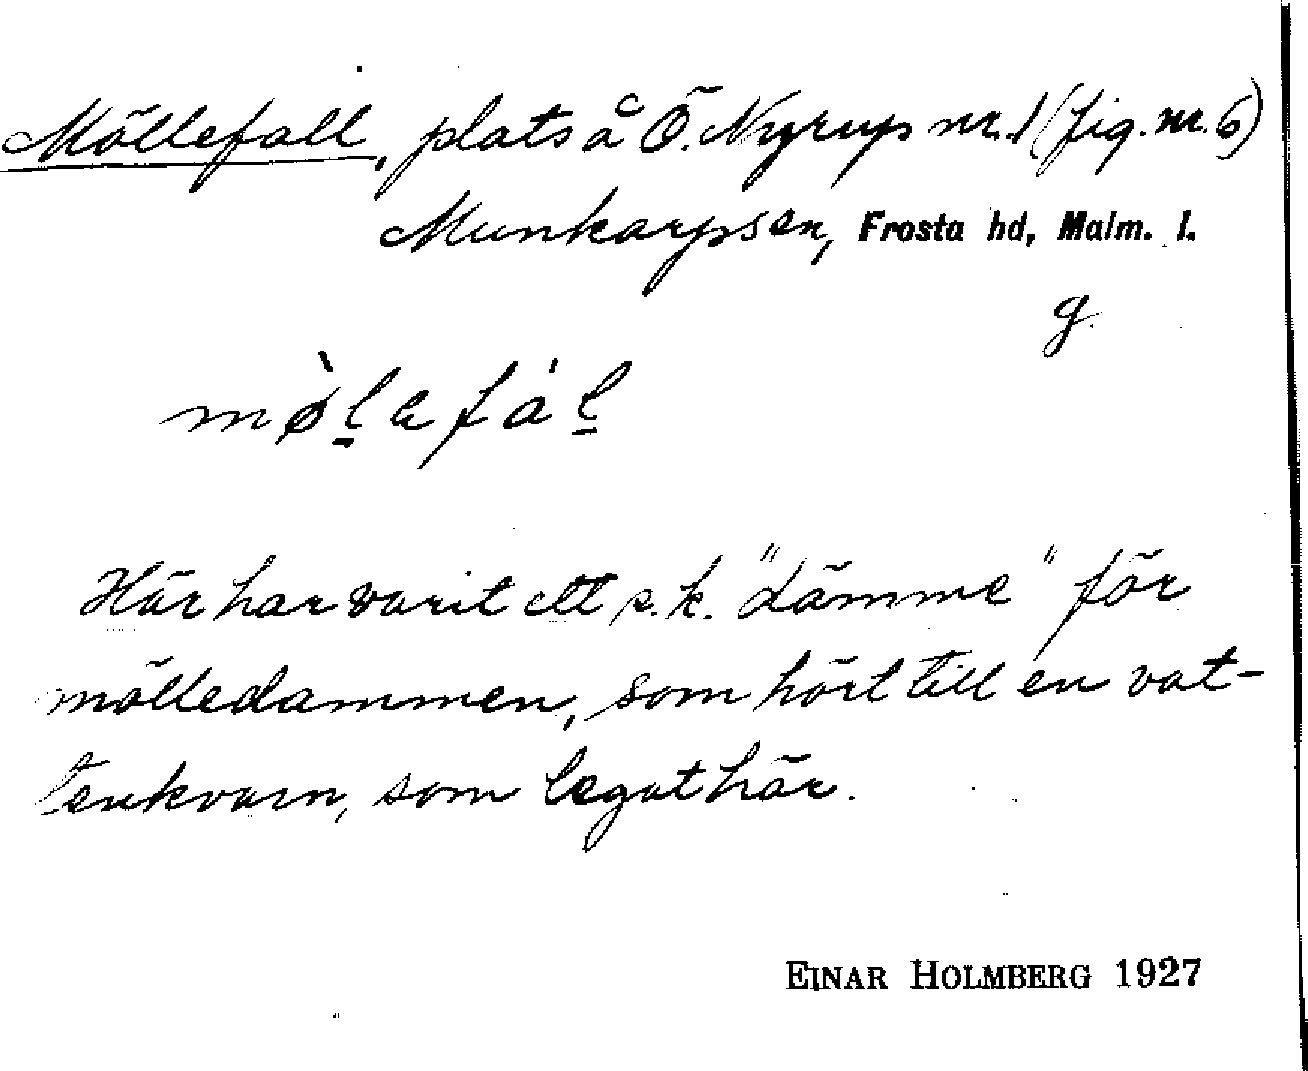 Möllefall, plats å Ö. Nyrup nr. 1 (fig. nr. 6)
Munkarps sn, Frosta hd, Malm. l.
g.
mø̀l̠efàl̠
Här har varit ett s.k. "dämme" för
mölledammen, som hört till en vat-
tenkvarn, som legat här.
EINAR HOLMBERG 1927